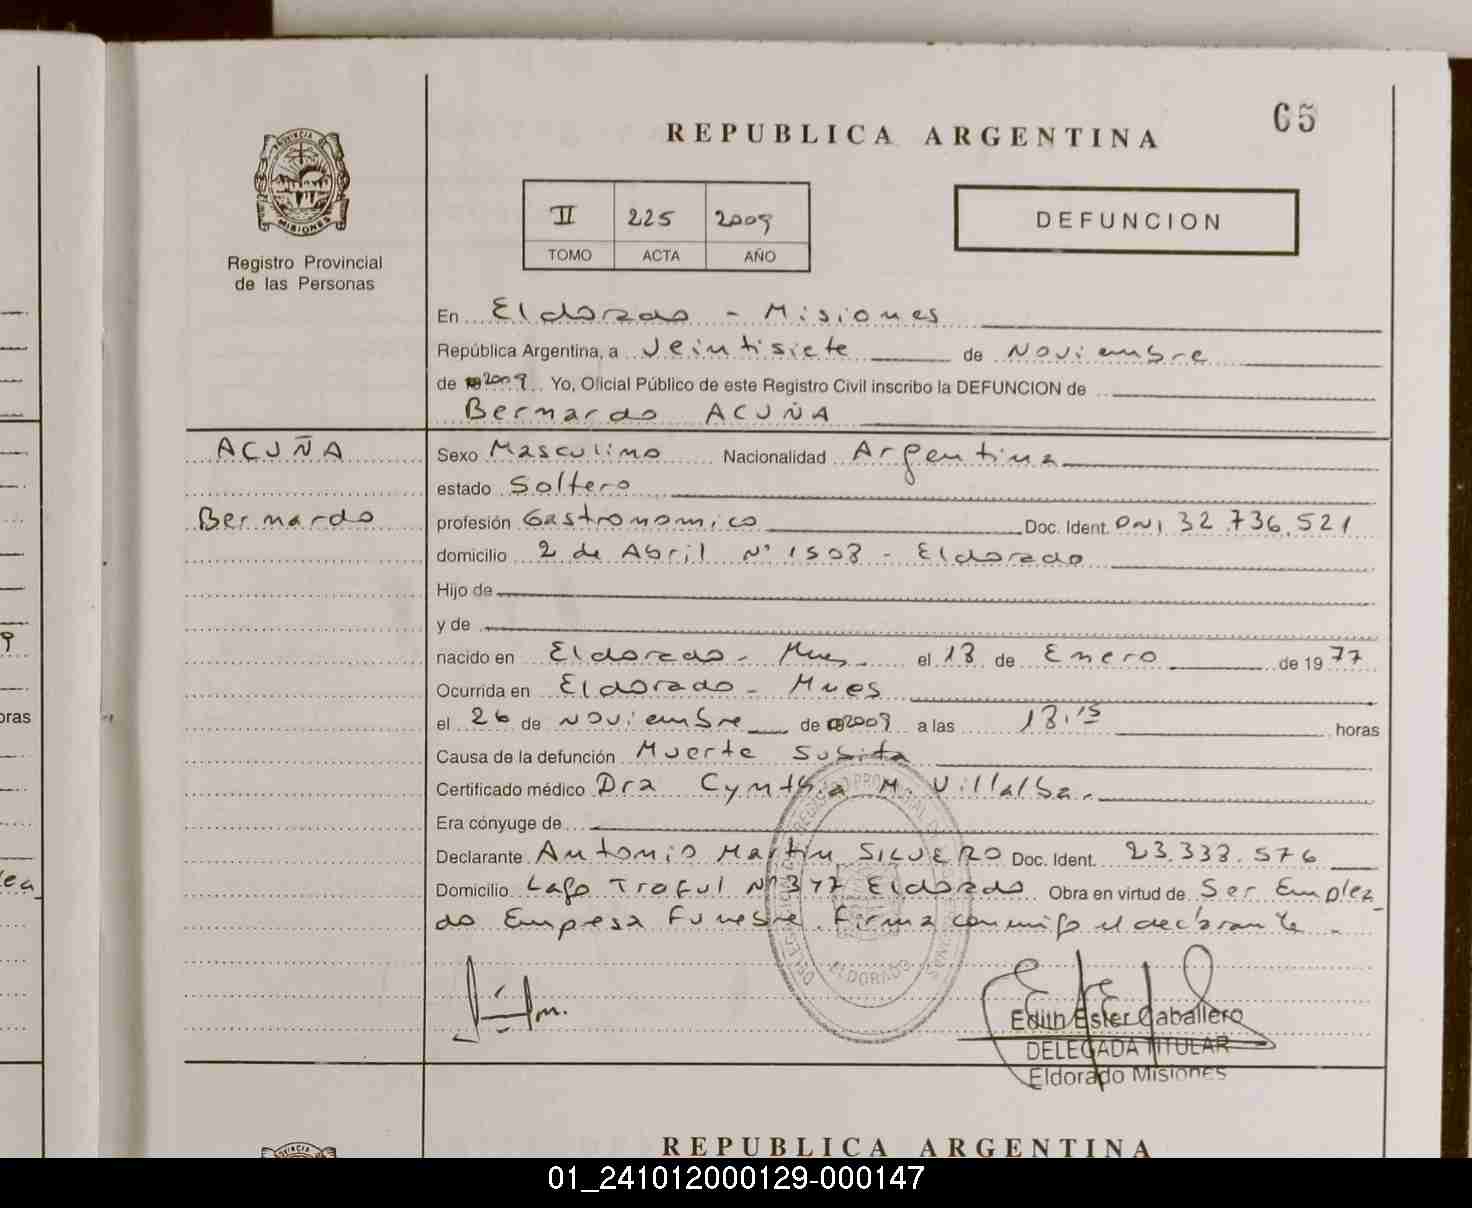 65
REPUBLICA ARGENTINA
PROVINCIA
MISIONES
Registro Provincial
de las Personas
II 225 2009
TOMO ACTA AÑO
DEFUNCION
En Eldorado - Misiones
República Argentina, a veintisiete de Noviembre
de 2009 Yo, Oficial Público de este Registro Civil inscribo la DEFUNCION de
Bernardo ACUÑA
ACUÑA
Bernardo
Sexo Masculino Nacionalidad Argentina
estado Soltero
profesión Gastronomico Doc. Ident. DNI 32.736.521
domicilio 2 de Abril N° 1503 - Eldorado
Hijo de
y de
nacido en Eldorado - Mnes el 13 de Enero de 1977
Ocurrida en Eldorado - Mnes
el 26 de Noviembre de 2009 a las 13.15 horas
Causa de la defunción Muerte Subita
Certificado médico Dra Cynthia M. Villalba.
Era cónyuge de
Declarante Antonio Martin SILVERO Doc. Ident. 23.333.576
Domicilio Lago Troful N° 377 Eldorado Obra en virtud de Ser Emplea
do Empresa Funebre. Firma conmigo el declarante.
ELDORADO
Edith Ester Caballero
DELEGADA TITULAR
Eldorado Misiones
REPUBLICA ARGENTINA
01_241012000129-000147